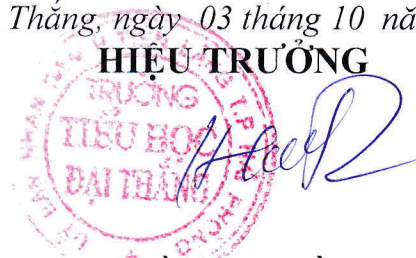 Thắng, ngày 03 tháng 10 nă
HIỆU TRƯỞNG
TRƯỜNG
TIỂU HỌC
ĐẠI THẮNG